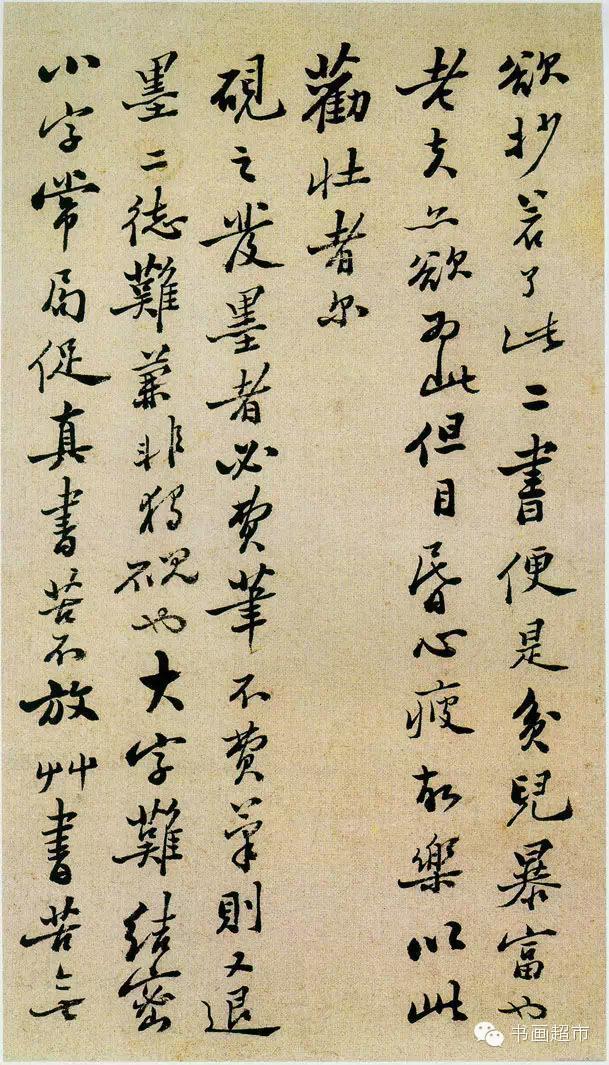 欲抄若了此二書便是貧兒暴富也
老夫亦欲為此但目昏心疲故樂以此
勸壯者尔
硯之發墨者必費筆不費筆則又退
墨二德難兼非獨硯也大字難結密
小字常局促真書苦不放艸書苦無
书画超市